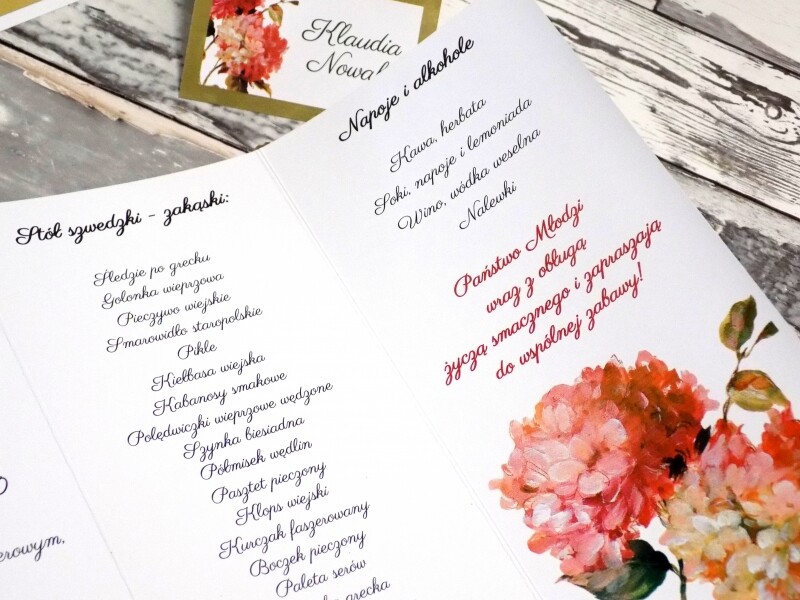 Klaudia
Stół szwedzki - zakąski:
Śledzie po grecku
Golonka wieprzowa
Pieczywo wiejskie
Smarowidło staropolskie
Pikle
Kiełbasa wiejska
Kabanosy smakowe
Polędwiczki wieprzowe wędzone
Szynka biesiadna
Półmisek wędlin
Pasztet pieczony
Klops wiejski
Kurczak faszerowany
Boczek pieczony
Paleta serów
grecka
Napoje i alkohole
Kawa, herbata
Soki, napoje i lemoniada
Wino, wódka weselna
Nalewki
Państwo Młodzi
wraz z obługą
życzą smacznego i zapraszają
do wspólnej zabawy!